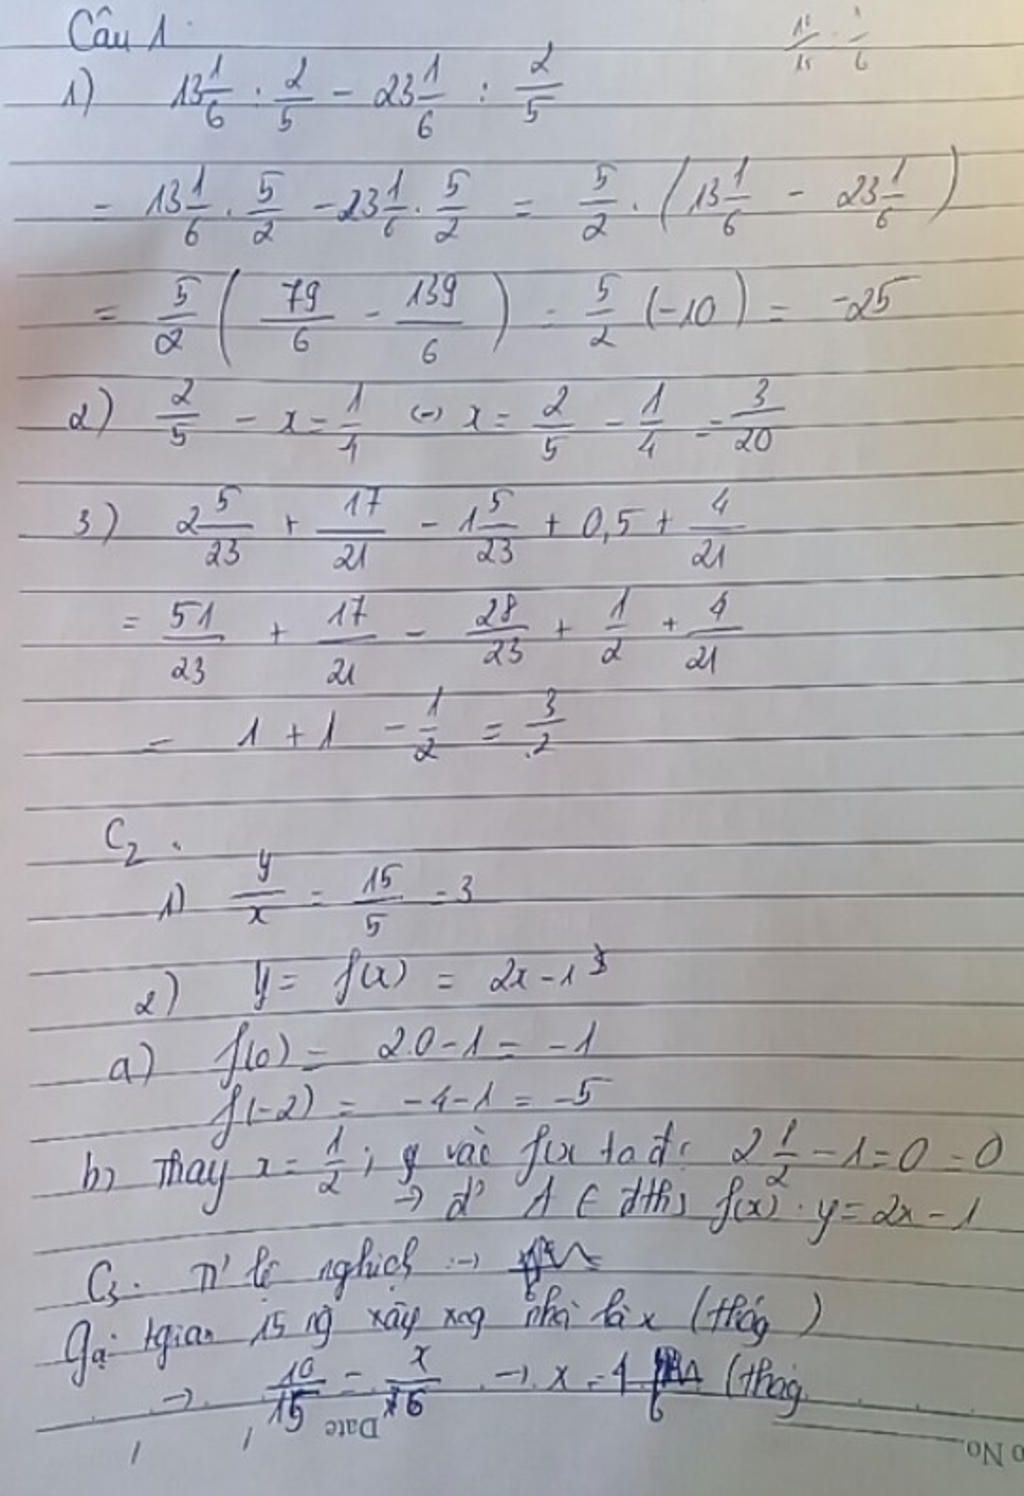 Câu 1.
1) 13 1/6 : 2/5 - 23 1/6 : 2/5
= 13 1/6 . 5/2 - 23 1/6 . 5/2 = 5/2 . (13 1/6 - 23 1/6)
= 5/2 (79/6 - 139/6) = 5/2 (-10) = -25
2) 2/5 - x = 1/4 (-) x = 2/5 - 1/4 = 3/20
3) 2 5/23 + 17/21 - 1 5/23 + 0,5 + 4/21
= 51/23 + 17/21 - 28/23 + 1/2 + 4/21
= 1 + 1 - 1/2 = 3/2
C2.
1) y/x = 15/5 = 3
2) y = f(x) = 2x - 1
a) f(0) = 2.0 - 1 = -1
f(-2) = -4 - 1 = -5
b) Thay x = 1/2 ; y vào f(x ta đ: 2 1/2 - 1 = 0 = 0
→ đ' A ∈ đths f(x) . y = 2x - 1
C3. Tỉ lệ nghịch →
Gọi tgian 15 ng xây xog nhà là x (thág)
→ 10/15 = x/6 → x = 4 (thág
Date
No